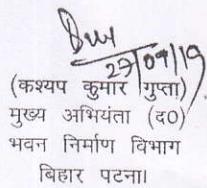 27/09/19
(कश्यप कुमार गुप्ता)
मुख्य अभियंता (द०)
भवन निर्माण विभाग
बिहार पटना।